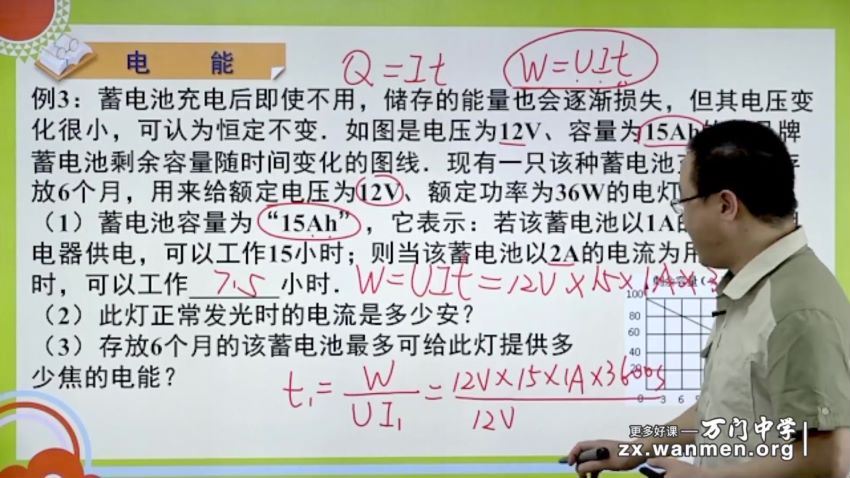 电 能
Q=It W=UIt
例3：蓄电池充电后即使不用，储存的能量也会逐渐损失，但其电压变
化很小，可认为恒定不变．如图是电压为12V、容量为15Ah的 牌
蓄电池剩余容量随时间变化的图线．现有一只该种蓄电池 存
放6个月，用来给额定电压为12V、额定功率为36W的电灯
（1）蓄电池容量为“15Ah”，它表示：若该蓄电池以1A的
电器供电，可以工作15小时；则当该蓄电池以2A的电流为用
时，可以工作 7.5 小时． W=UIt=12V×15×1A×3
剩余容量（
（2）此灯正常发光时的电流是多少安？
（3）存放6个月的该蓄电池最多可给此灯提供多
少焦的电能？
t₁=W/UI₁=12V×15×1A×3600s/12V
100
80
60
40
20
0 3 6 9
更多好课—万门中学
zx.wanmen.org